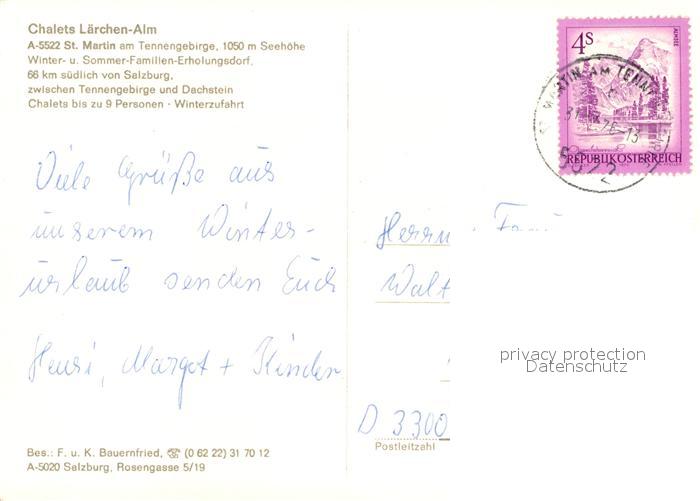 Chalets Lärchen-Alm
A-5522 St. Martin am Tennengebirge, 1050 m Seehöhe
Winter- u. Sommer-Familien-Erholungsdorf,
66 km südlich von Salzburg,
zwischen Tennengebirge und Dachstein
Chalets bis zu 9 Personen · Winterzufahrt
4S
ALMSEE
ST. MARTIN AM TENNE
5522
REPUBLIK ÖSTERREICH
Viele Grüße aus
unserem Winter-
urlaub senden Euch
Henri, Margot + Kinder
Herrn
Walt
D 3300
Postleitzahl
privacy protection
Datenschutz
Bes.: F. u. K. Bauernfried, ☎ (0 62 22) 31 70 12
A-5020 Salzburg, Rosengasse 5/19